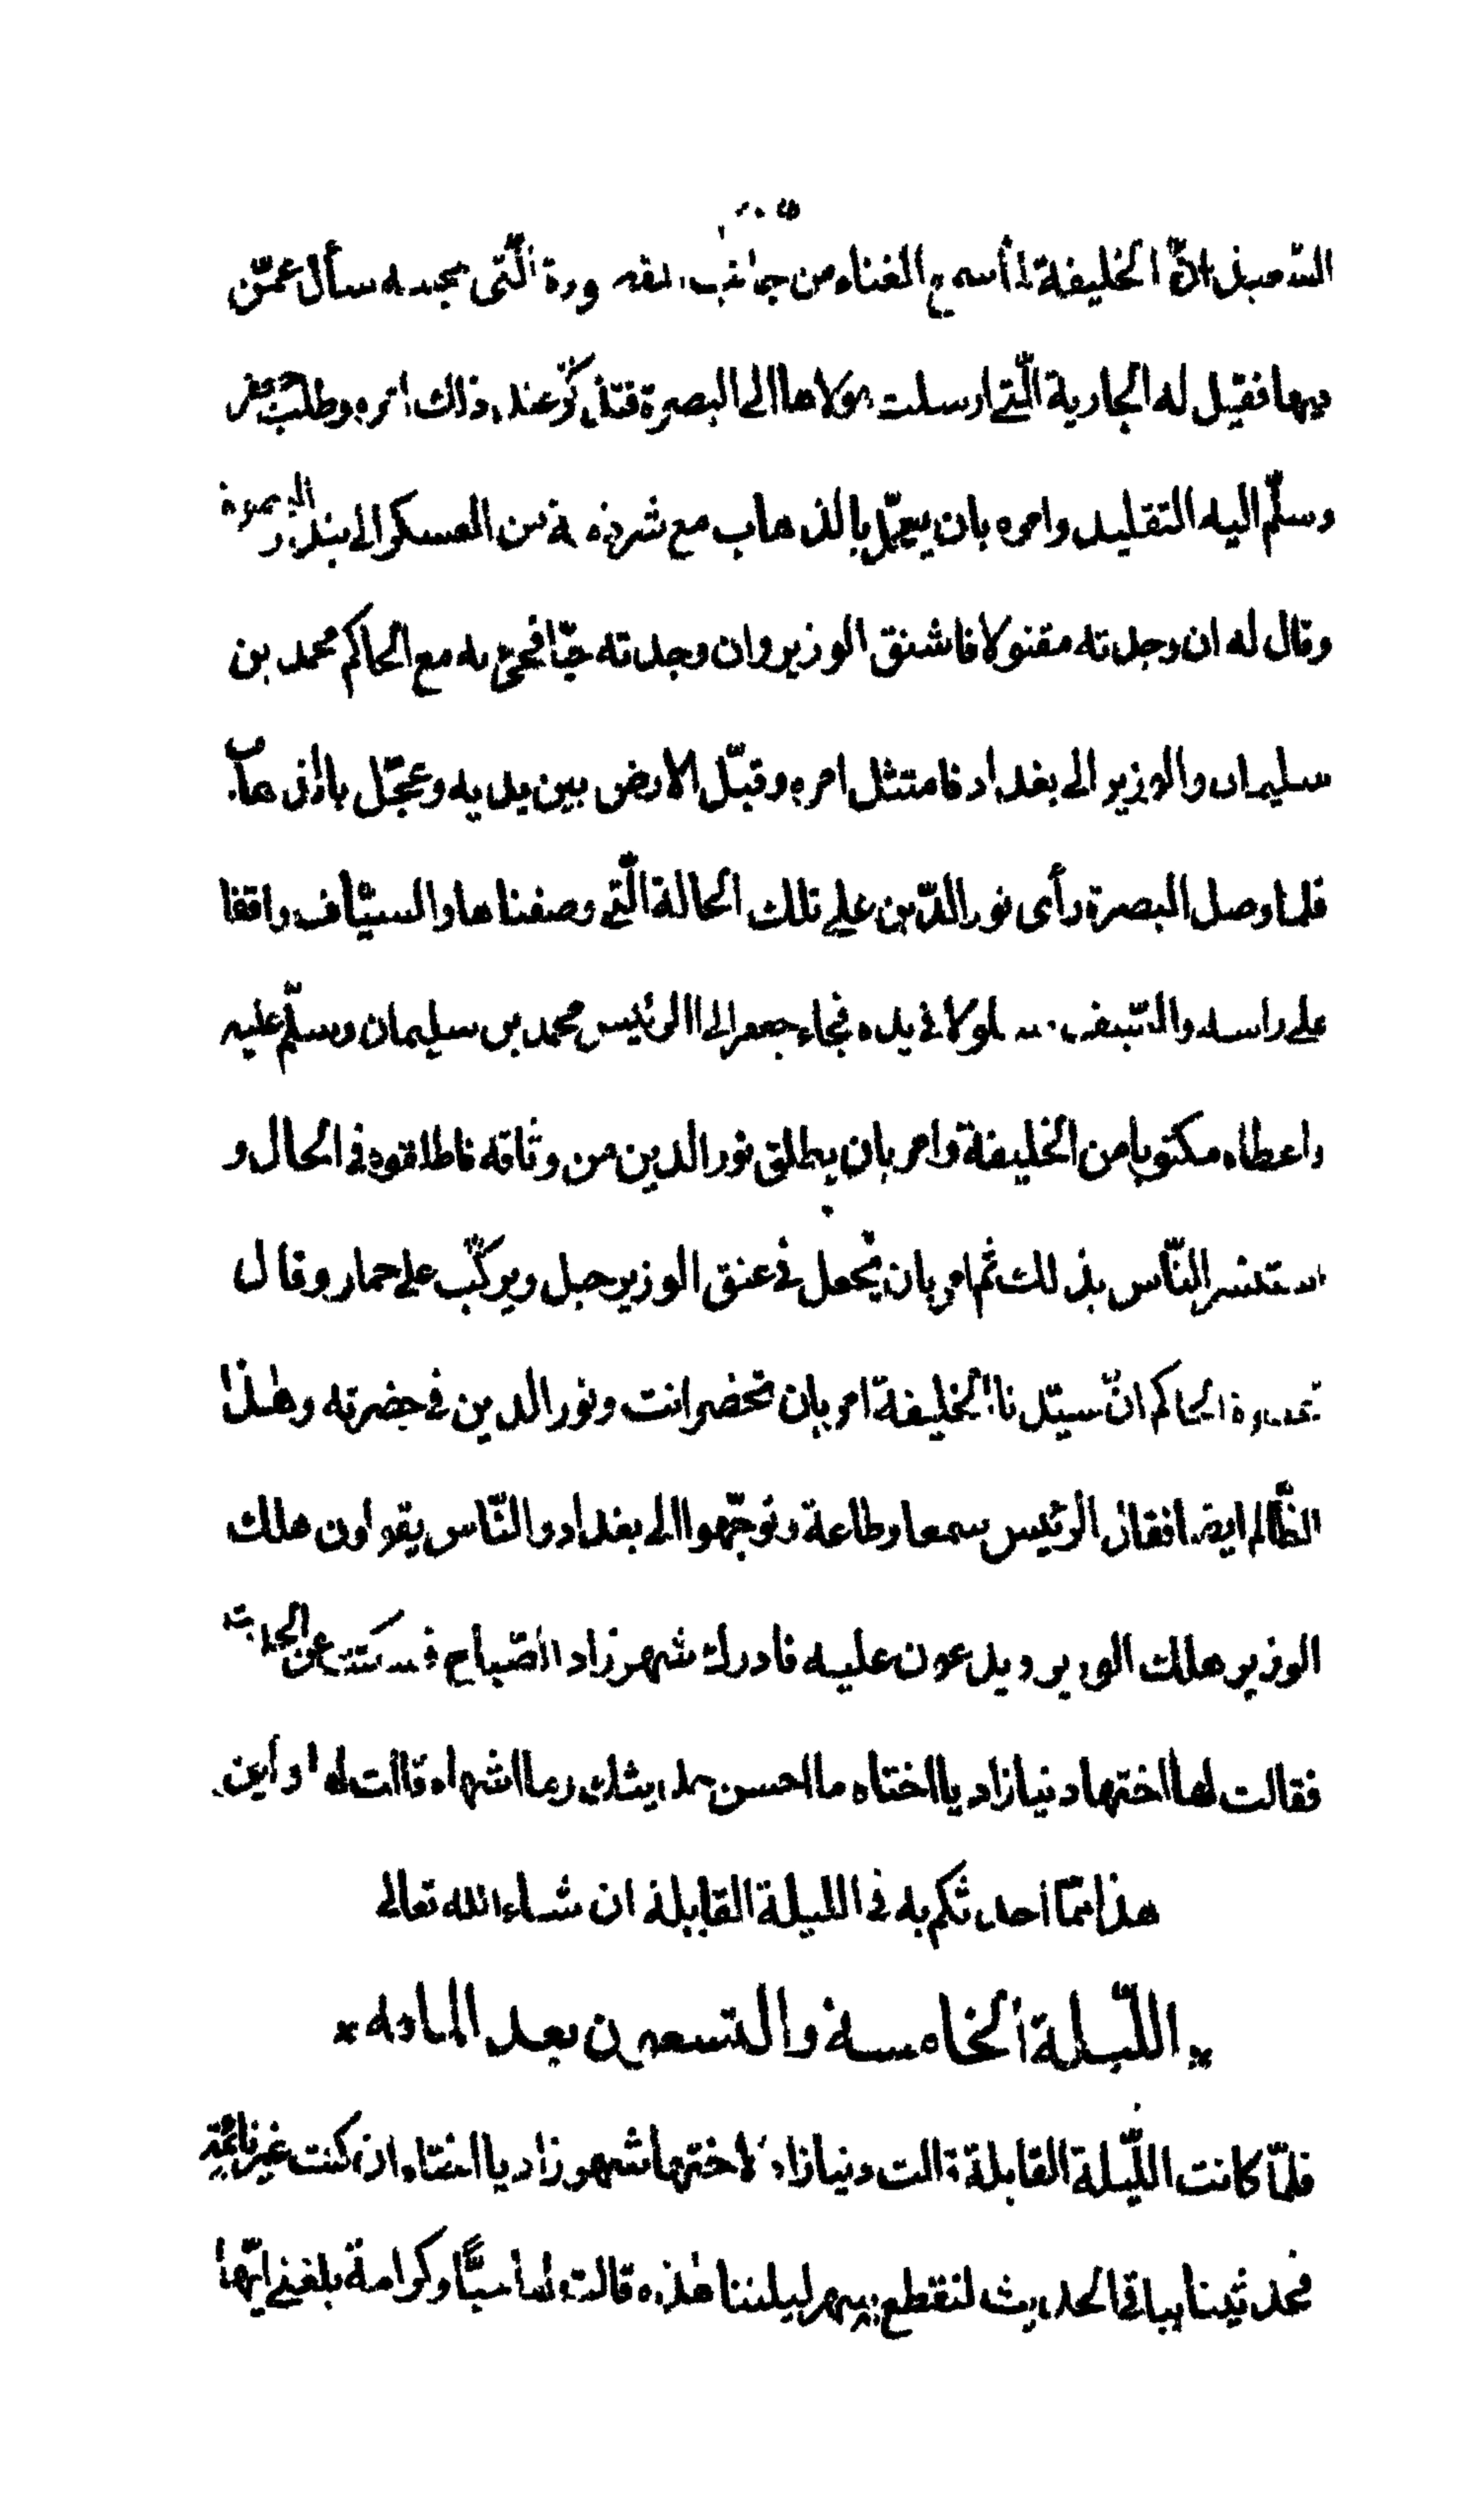 الخليفة لما سمع الغناء من جانب المقصورة الّتى بجنبه سأل عمّن
فيها فقيل له الجارية الّتي ارسلت مولاها الى البصرة فتذكّر عند ذلك امره وطلب جعفر
وسلّم اليه التقليد وامره بان يعجّل بالذهاب مع شرذمة من العسكر الى بندر البصرة
وقال له ان وجدته مقتولا فاشنق الوزير وان وجدته حيّا فجئ به مع الحاكم محمد بن
سليمان والوزير الى بغداد فامتثل امره وقبّل الارض بين يديه وعجّل بالذهاب
فلما وصل البصرة رأى نور الدّين على تلك الحالة الّتي وصفناها والسيّاف واقفا
على راسه والسّيف مسلولا في يده فجاء جعفر الى الرئيس محمد بن سليمان وسلّم عليه
واعطاه مكتوبا من الخليفة وامر بان يطلق نور الدين من وثاقه فاطلقوه في الحال و
استبشر النّاس بذلك ثم امر بان يجعل في عنق الوزير حبل ويركّب على حمار وقال
الحاكم انّ سيّدنا الخليفة امر بان تحضر انت ونور الدين في حضرته وهذا
الظّالم ايضا فقال الرئيس سمعا وطاعة وتوجّهوا الى بغداد والنّاس يقولون هلك
الوزير هلك الوزير ويدعون عليه فادرك شهرزاد الصّباح فسكتت عن الحديث
فقالت لها اختها دنيازاد يا اختاه ما احسن حديثك وما اشهاه قالت لها واين
هذا ممّا أحدثكم به في الليلة القابلة ان شاء الله تعالى
* اللّيلة الخامسة والتسعون بعد المايه *
فلمّا كانت اللّيلة القابلة قالت دنيازاد لاختها شهرزاد يا اختاه ان كنت غير نائمة
فحدثينا بباقي الحديث لنقطع به سهر ليلتنا هذه قالت لها حبّا وكرامة بلغني ايّها